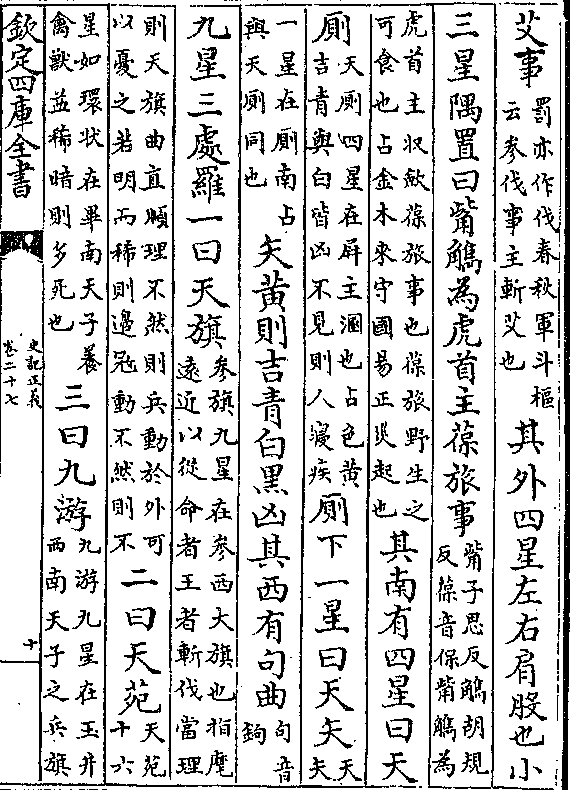 艾事罰亦作伐春秋軍斗樞云參伐事主斬艾也其外四星左右肩股也小
三星隅置曰觜觿為虎首主葆旅事觜子思反觿胡規反葆音保觜觿為
虎首主収斂葆旅事也葆旅野生之可食也占金木來守國易正災起也其南有四星曰天
厠天厠四星在屏主溷也占色黄吉青與白皆凶不見則人寢疾厠下一星曰天矢天矢
一星在厠南占與天厠同也矢黄則吉青白黑凶其西有句曲句音鉤
九星三處羅一曰天旗參旗九星在參西大旗也指麾遠近以從命者王者斬伐當理
則天旗曲直順理不然則兵動於外可以憂之若明而稀則邊冦動不然則不二曰天苑天苑十六
星如環状在畢南天子養禽獸益稀暗則多死也三曰九游九游九星在玉井西南天子之兵旗
欽定四庫全書
史記正義
卷二十七
十